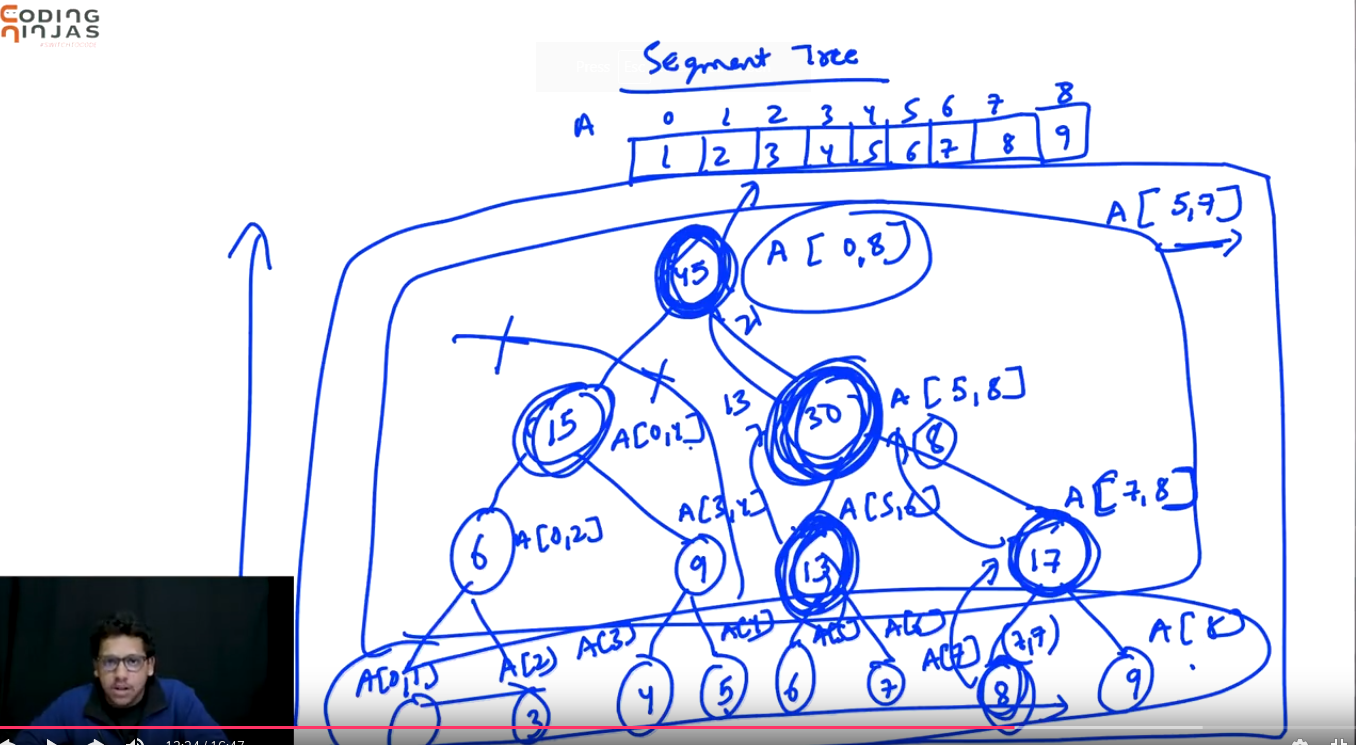 CODING
NINJAS
#SWITCHTOCODE
Segment Tree
0 1 2 3 4 5 6 7 8
A 1 2 3 4 5 6 7 8 9
A [ 5,7]
45 A [ 0,8]
21
15 A[0,4] 13 30 A [ 5,8]
8
6 A[0,2] 9 A[3,4] 13 A[5,6] 17 A[7,8]
A[0,1] A[2] A[3] A[4] A[5] A[6] A[7] (7,7) A[8]
3 4 5 6 7 8 9